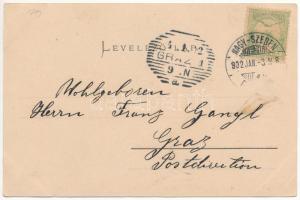 LEVELEZŐ-LAP.
GRAZ 1
NAGY-SZEBEN
902 JAN.
Wohlgeboren
Herrn Franz Gangl
Graz
Postdirection